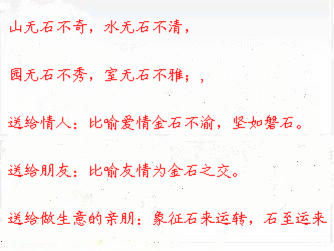 山无石不奇，水无石不清，
园无石不秀，室无石不雅；，
送给情人：比喻爱情金石不渝，坚如磐石。
送给朋友：比喻友情为金石之交。
送给做生意的亲朋：象征石来运转，石至运来